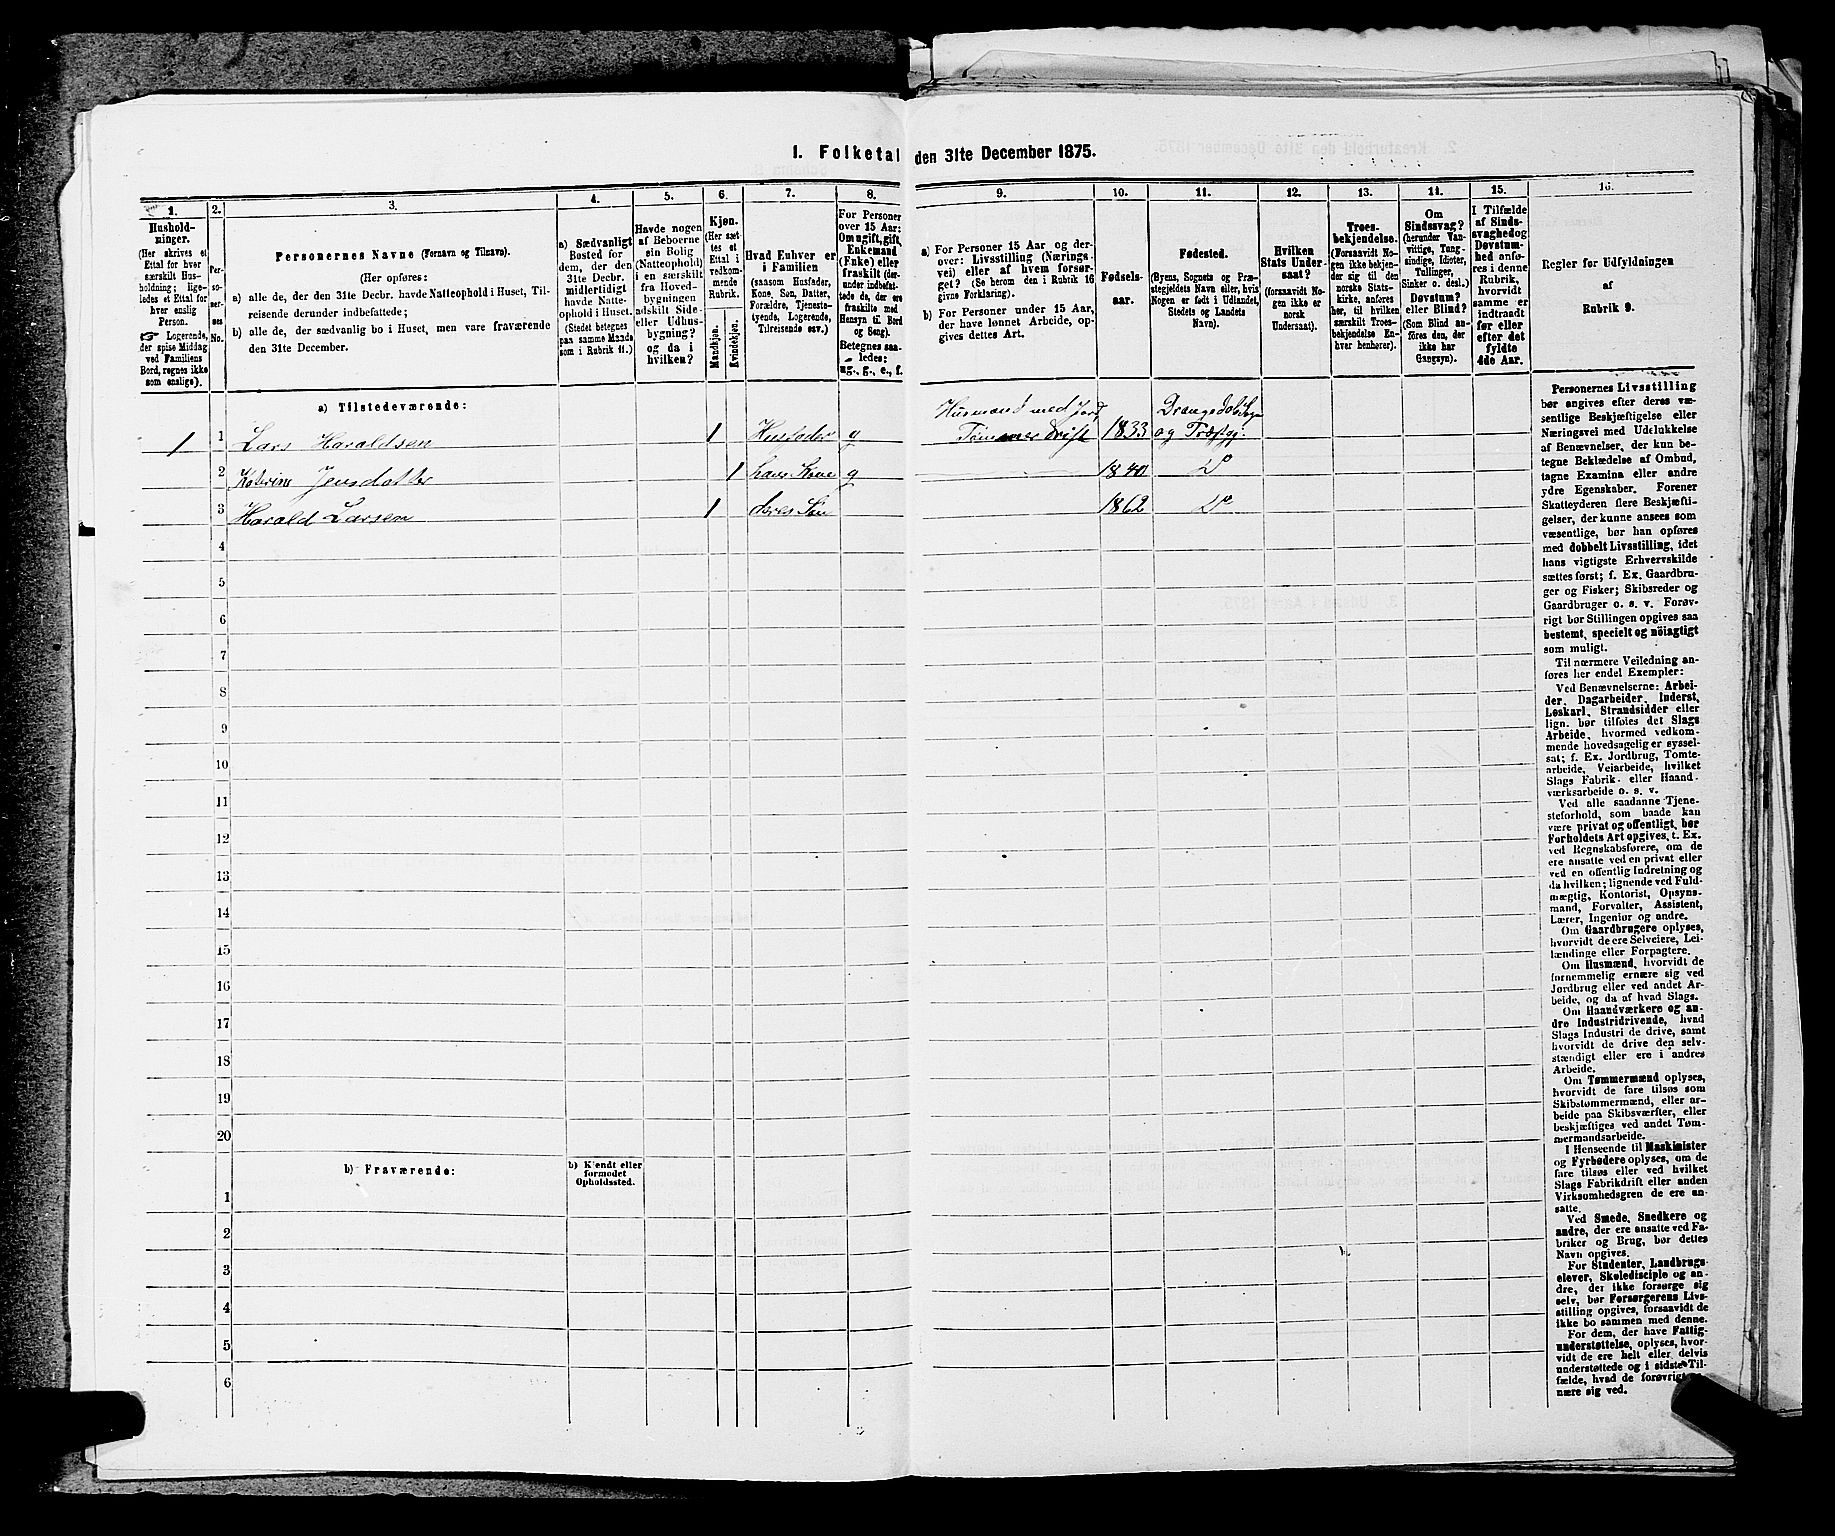 1. Folketal den 31te December 1875.
1.
Hushold-
ninger.
(Her skrives et
Ettal for hver
særskilt Hus-
holdning; lige-
ledes et Ettal for
hver enslig
Person.
☞ Logerende,
der spise Middag
ved Familiens
Bord, regnes ikke
som enslige).
2.
Per-
so-
ner-
nes
No.
3.
Personernes Navne (Fornavn og Tilnavn).
(Her opføres:
a) alle de, der den 31te Decbr. havde Natteophold i Huset, Til-
reisende derunder indbefattede;
b) alle de, der sædvanlig bo i Huset, men vare fraværende
den 31te December.
4.
a) Sædvanligt
Bosted for
dem, der den
31te Decbr.
midlertidigt
havde Natte-
ophold i Huset.
(Stedet betegnes
paa samme Maade
som i Rubrik 11.)
5.
Havde nogen
af Beboerne
sin Bolig
(Natteophold)
i en særskilt
fra Hoved-
bygningen
adskilt Side-
eller Udhus-
bygning?
og da i
hvilken?
6.
Kjøn.
(Her sæt-
tes et
Ettal i
vedkom-
mende
Rubrik.
Mandkjøn.
Kvindekjøn.
7.
Hvad Enhver er
i Familien
(saasom Husfader,
Kone, Søn, Datter,
Forældre, Tjeneste-
tyende, Logerende,
Tilreisende osv.)
8.
For Personer
over 15 Aar:
Om ugift, gift,
Enkemand
(Enke) eller
fraskilt (der-
under indbefat-
tede de, der ere
fraskilte med
Hensyn til Bord
og Seng).
Betegnes saa-
ledes:
ug., g., e., f.
9.
a) For Personer 15 Aar og der-
over: Livsstilling (Nærings-
vei) eller af hvem forsør-
get? (Se herom den i Rubrik 16
givne Forklaring).
b) For Personer under 15 Aar,
der have lønnet Arbeide, op-
gives dettes Art.
10.
Fødsels-
aar.
11.
Fødested.
(Byens, Sognets og Præ-
stegjeldets Navn eller, hvis
Nogen er født i Udlandet,
Stedets og Landets
Navn).
12.
Hvilken
Stats Under-
saat?
(forsaavidt No-
gen ikke er
norsk
Undersaat).
13.
Troes-
bekjendelse.
(Forsaavidt No-
gen ikke bekjen-
der sig til den
norske Stats-
kirke, anføres
her, til hvilken
særskilt Troes-
bekjendelse En-
hver henhører).
14.
Om
Sindssvag?
(herunder Van-
vittige, Tung-
sindige, Idioter,
Tullinger,
Sinker o. desl.)
Døvstum?
eller Blind?
(Som Blind an-
føres den, der
ikke har
Gangsyn).
15.
I Tilfælde
af Sinds-
svaghed og
Døvstum-
hed anfø-
res i denne
Rubrik,
hvorvidt
samme er
indtraadt
før eller
efter det
fyldte
4de Aar.
16.
Regler for Udfyldningen
af
Rubrik 9.
a) Tilstedeværende:
1 1 Lars Haraldsen 1 Husfader g Husmand med Jord, Tømmerdrift 1833 Drangedals Sogn og Præstgj:
2 Katrine Jensdatter 1 hans Kone g 1840 Do
3 Harald Larsen 1 deres Søn 1862 Do
4
5
6
7
8
9
10
11
12
13
14
15
16
17
18
19
20
b) Fraværende:
b) Kjendt eller
formodet
Opholdssted.
1
2
3
4
5
6
Personernes Livsstilling
bør angives efter deres væ-
sentlige Beskjæftigelse eller
Næringsvei med Udelukkelse
af Benævnelser, der kun be-
tegne Beklædelse af Ombud,
tagne Examina eller andre
ydre Egenskaber. Forener
Skatteyderen flere Beskjæfti-
gelser, der kunne ansees som
væsentlige, bør han opføres
med dobbelt Livsstilling, idet
hans vigtigste Erhvervskilde
sættes først; f. Ex. Gaardbru-
ger og Fisker; Skibsreder og
Gaardbruger o. s. v. Forøv-
rigt bør Stillingen opgives saa
bestemt, specielt og nöiagtigt
som muligt.
Til nærmere Veiledning an-
føres her endel Exempler:
Ved Benævnelserne: Arbei-
der, Dagarbeider, Inderst,
Løskarl, Strandsidder eller
lign. bør tilføies det Slags
Arbeide, hvormed vedkom-
mende hovedsagelig er syssel-
sat; f. Ex. Jordbrug, Tomte-
arbeide, Veiarbeide, hvilket
Slags Fabrik- eller Haand-
værksarbeide o. s. v.
Ved alle saadanne Tjene-
steforhold, som baade kan
være privat og offentligt, bør
Forholdets Art opgives, t. Ex.
ved Regnskabsførere, om de
ere ansatte ved en privat eller
ved en offentlig Indretning og
da hvilken; lignende ved Fuld-
mægtig, Kontorist, Opsyns-
mand, Forvalter, Assistent,
Lærer, Ingeniør og andre.
Om Gaardbrugere oplyses,
hvorvidt de ere Selveiere, Lei-
lændinge eller Forpagtere.
Om Husmænd, hvorvidt de
fornemmelig ernære sig ved
Jordbrug eller ved andet Ar-
beide, og da af hvad Slags.
Om Haandværkere og an-
dre Industridrivende, hvad
Slags Industri de drive, samt
hvorvidt de drive den selv-
stændigt eller ere i andres
Arbeide.
Om Tømmermænd oplyses,
hvorvidt de fare tilsøs som
Skibstømmermænd, eller ar-
beide paa Skibsværfter, eller
beskjæftiges ved andet Tøm-
mermandsarbeide.
I Henseende til Maskinister
og Fyrbødere oplyses, om de
fare tilsøs eller ved hvilket
Slags Fabrikdrift eller anden
Virksomhedsgren de ere an-
satte.
Ved Smede, Snedkere og
andre, der ere ansatte ved Fa-
briker og Brug, bør dettes
Navn opgives.
For Studenter, Landbrugs-
elever, Skoledisciple og an-
dre, der ikke forsørge sig
selv, bør Forsørgerens Livs-
stilling opgives, forsaavidt de
ikke bo sammen med denne.
For dem, der have Fattig-
understøttelse, oplyses, hvor-
vidt de ere helt eller delvis
understøttede og i sidste Til-
fælde, hvad de forøvrigt
nære sig ved.